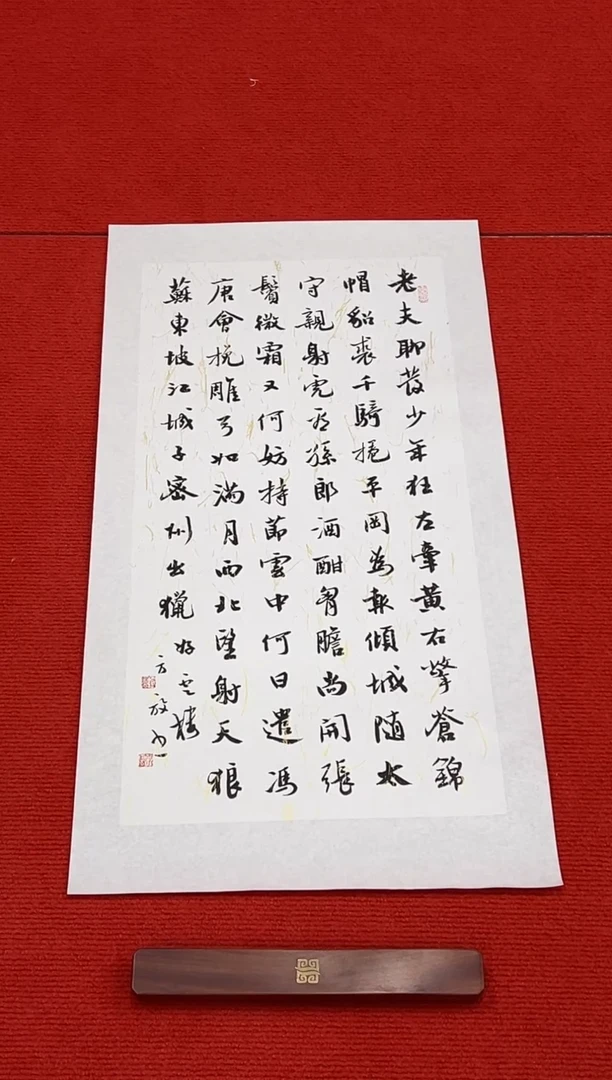 老夫聊發少年狂左牽黃右擎蒼錦
帽貂裘千騎捲平岡為報傾城隨太
守親射虎看孫郎酒酣胷膽尚開張
鬢微霜又何妨持節雲中何日遣馮
唐會挽雕弓如滿月西北望射天狼
蘇東坡江城子密州出獵